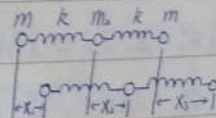 m k m₀ k m
x₁ x₂ x₃